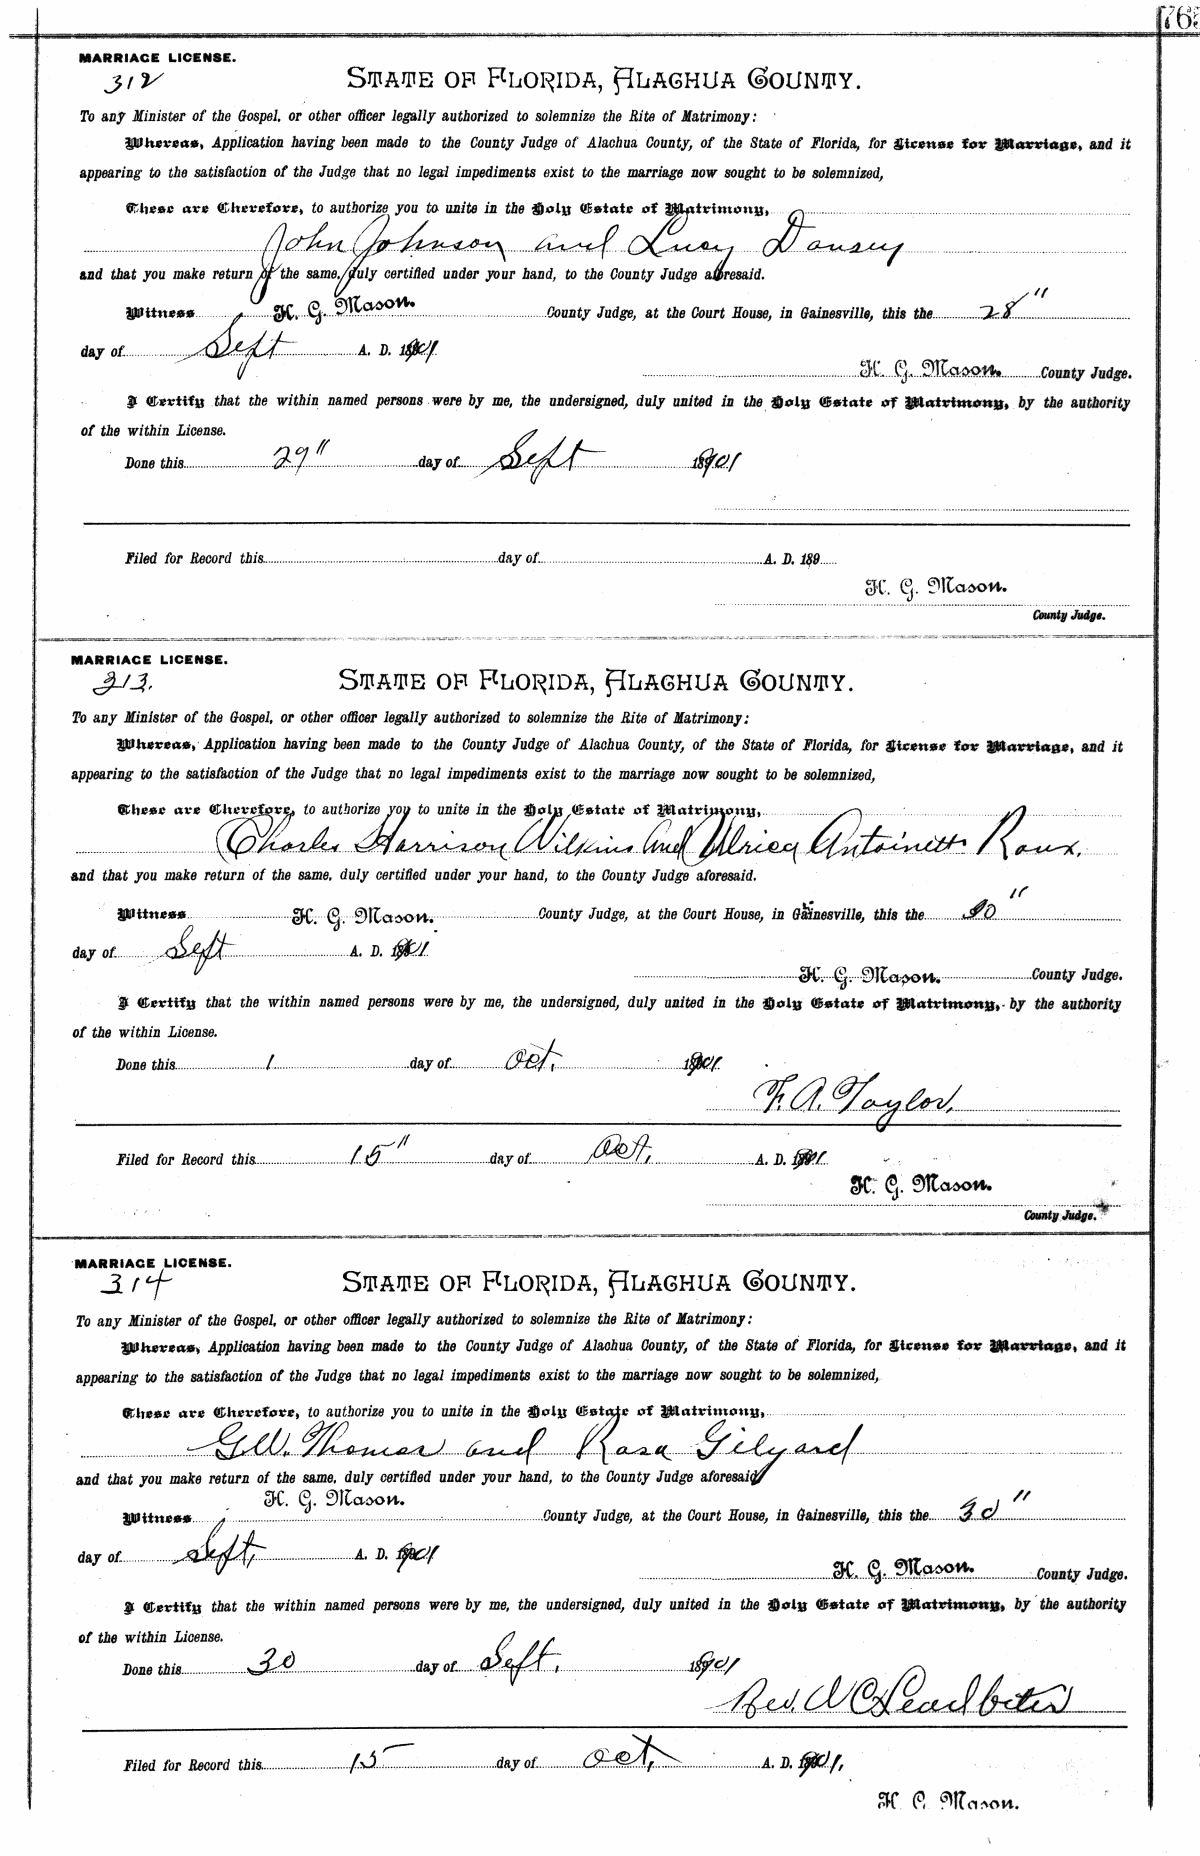 765
MARRIAGE LICENSE.
312
STATE OF FLORIDA, ALACHUA COUNTY.
To any Minister of the Gospel, or other officer legally authorized to solemnize the Rite of Matrimony:
Whereas, Application having been made to the County Judge of Alachua County, of the State of Florida, for License for Marriage, and it
appearing to the satisfaction of the Judge that no legal impediments exist to the marriage now sought to be solemnized,
These are Therefore, to authorize you to unite in the Holy Estate of Matrimony,
John Johnson and Lucy Dansey
and that you make return of the same, duly certified under your hand, to the County Judge aforesaid.
Witness H. G. Mason. County Judge, at the Court House, in Gainesville, this the 28"
day of Sept A. D. 1901
H. G. Mason. County Judge.
I Certify that the within named persons were by me, the undersigned, duly united in the Holy Estate of Matrimony, by the authority
of the within License.
Done this 29" day of Sept 1901
Filed for Record this day of A. D. 189
H. G. Mason.
County Judge.
MARRIAGE LICENSE.
313.
STATE OF FLORIDA, ALACHUA COUNTY.
To any Minister of the Gospel, or other officer legally authorized to solemnize the Rite of Matrimony:
Whereas, Application having been made to the County Judge of Alachua County, of the State of Florida, for License for Marriage, and it
appearing to the satisfaction of the Judge that no legal impediments exist to the marriage now sought to be solemnized,
These are Therefore, to authorize you to unite in the Holy Estate of Matrimony,
Charles Harrison Wilkins and Ulrica Antoinette Roux.
and that you make return of the same, duly certified under your hand, to the County Judge aforesaid.
Witness H. G. Mason. County Judge, at the Court House, in Gainesville, this the 30"
day of Sept A. D. 1901
H. G. Mason. County Judge.
I Certify that the within named persons were by me, the undersigned, duly united in the Holy Estate of Matrimony, by the authority
of the within License.
Done this 1 day of Oct. 1901
F. A. Taylor.
Filed for Record this 15" day of Oct. A. D. 1901
H. G. Mason.
County Judge.
MARRIAGE LICENSE.
314
STATE OF FLORIDA, ALACHUA COUNTY.
To any Minister of the Gospel, or other officer legally authorized to solemnize the Rite of Matrimony:
Whereas, Application having been made to the County Judge of Alachua County, of the State of Florida, for License for Marriage, and it
appearing to the satisfaction of the Judge that no legal impediments exist to the marriage now sought to be solemnized,
These are Therefore, to authorize you to unite in the Holy Estate of Matrimony,
G.W. Thomas and Rosa Gilyard
and that you make return of the same, duly certified under your hand, to the County Judge aforesaid
H. G. Mason.
Witness County Judge, at the Court House, in Gainesville, this the 30"
day of Sept, A. D. 1901
H. G. Mason. County Judge.
I Certify that the within named persons were by me, the undersigned, duly united in the Holy Estate of Matrimony, by the authority
of the within License.
Done this 30 day of Sept. 1901
Rev.
Filed for Record this 15 day of Oct, A. D. 1901,
H. G. Mason.